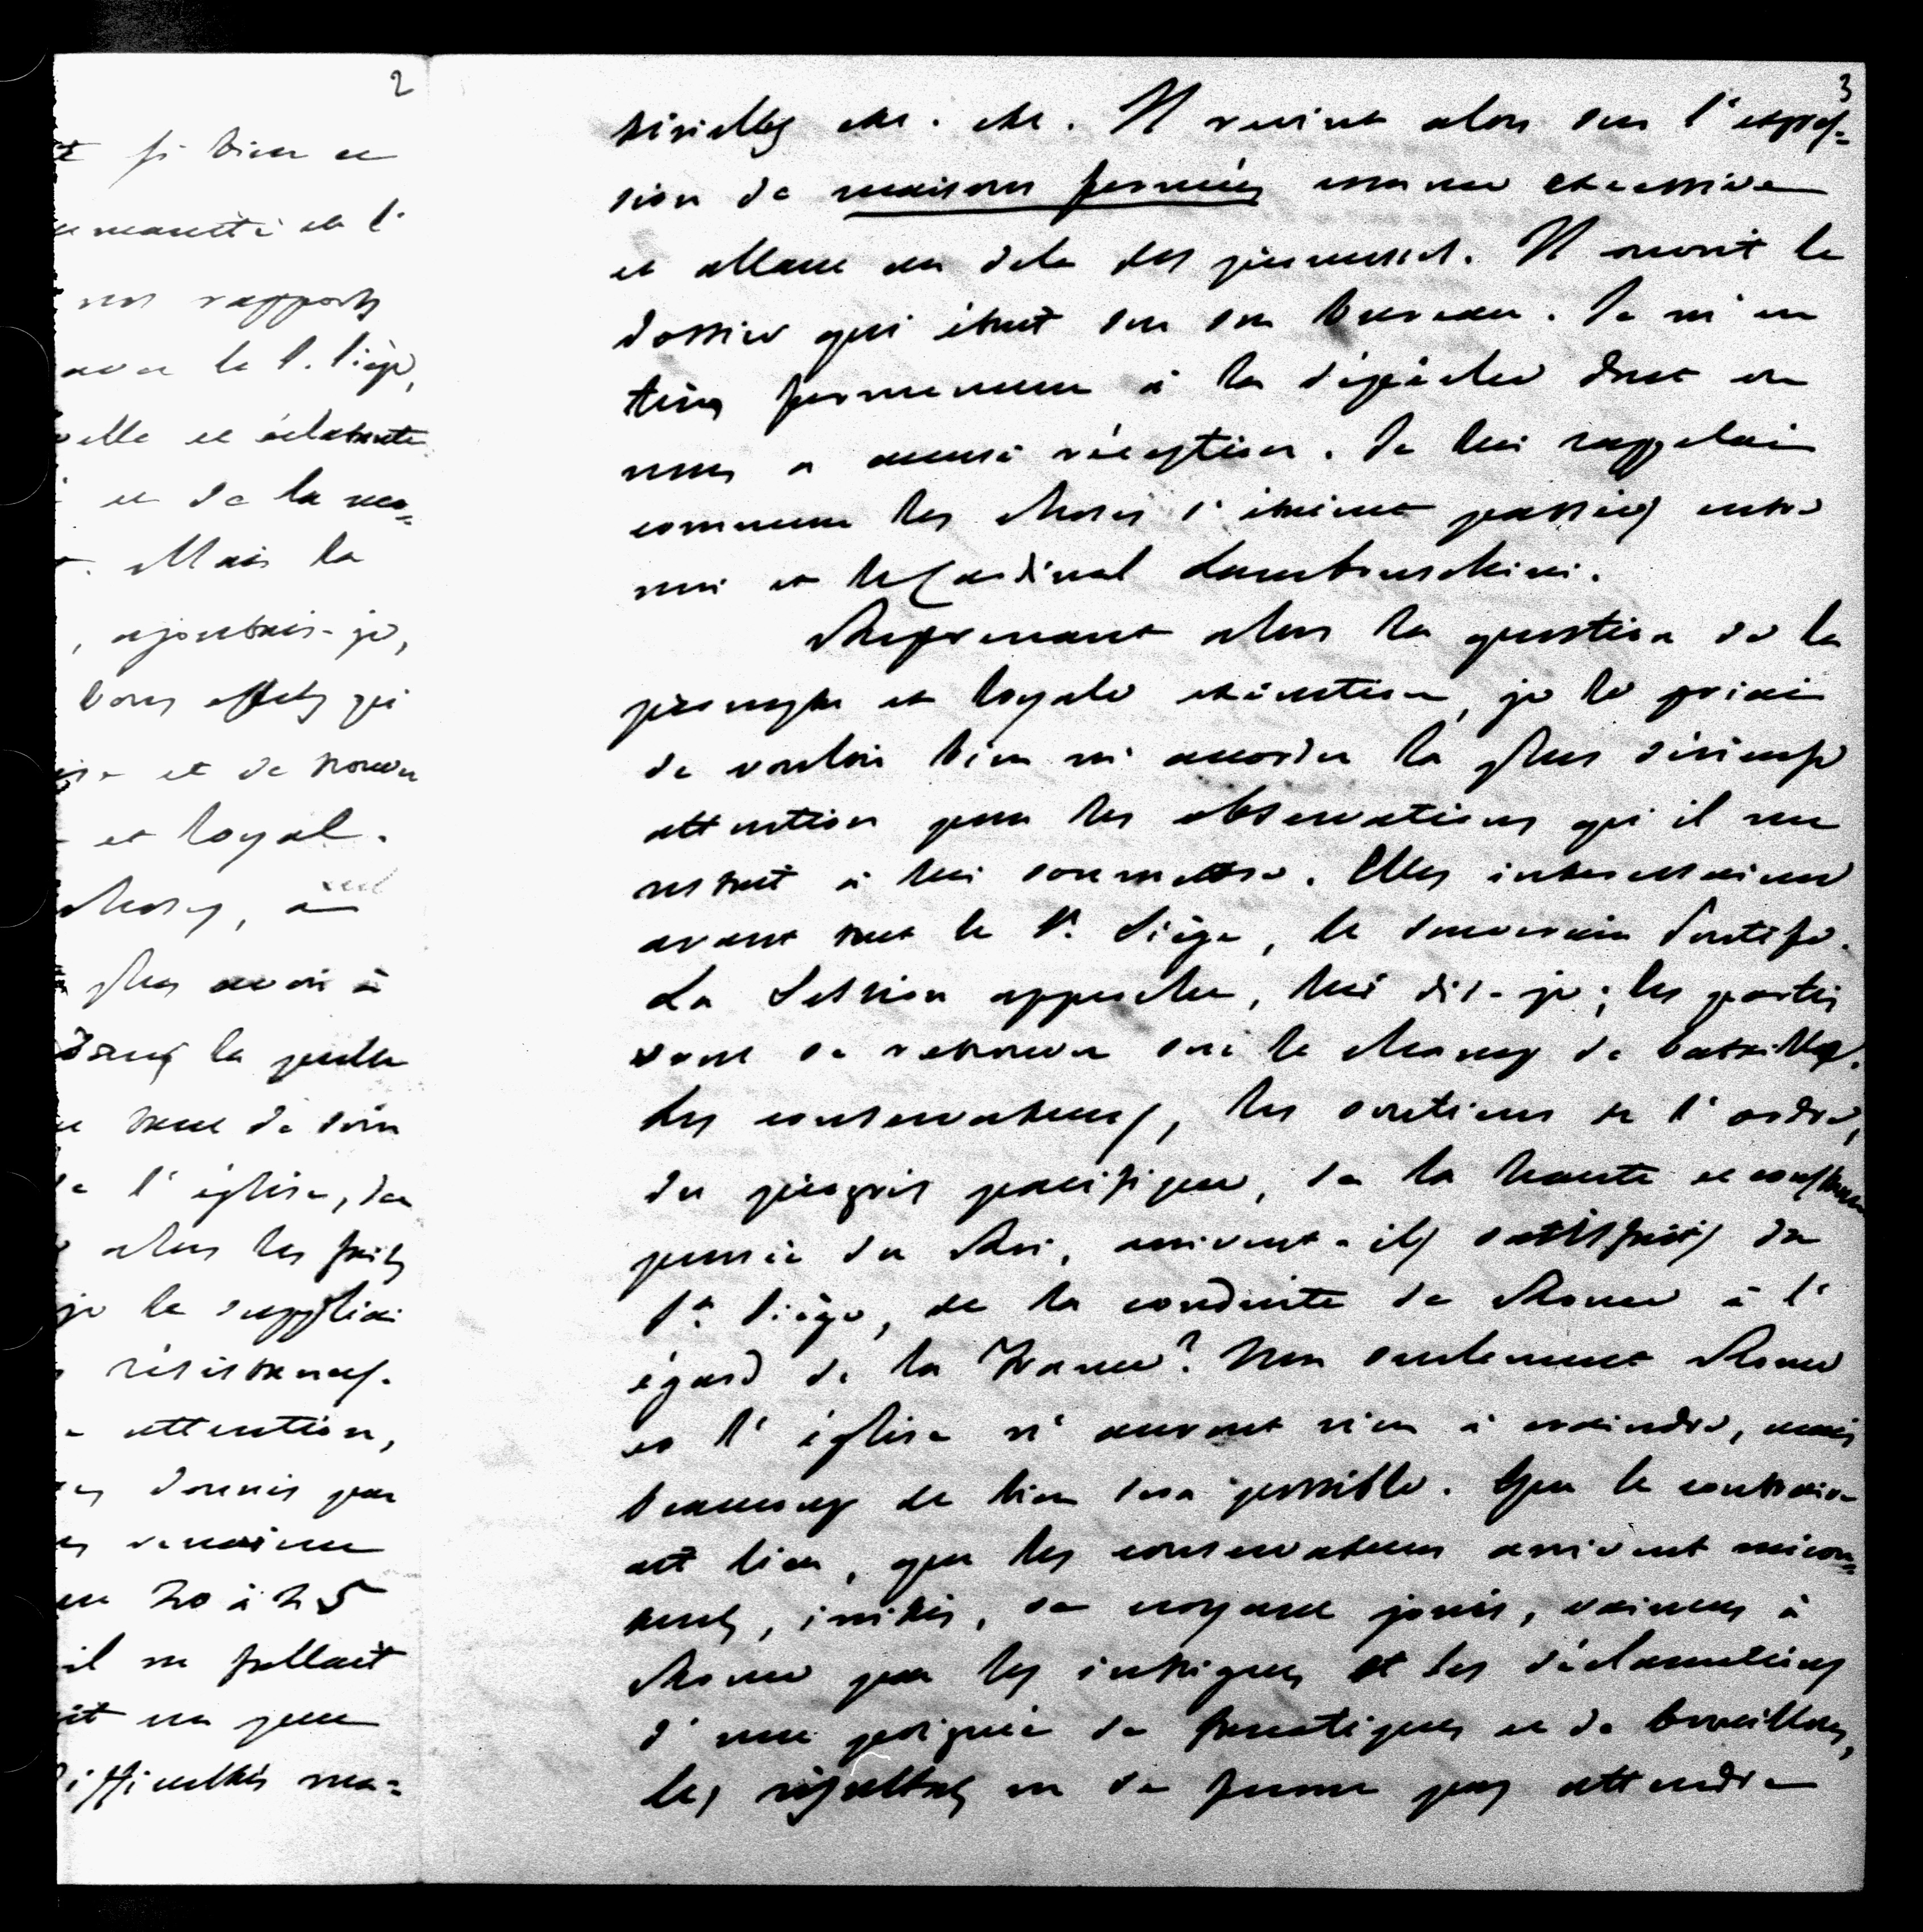 2
si bien et
umanité et l'
nos rapports
avec le S. Siège,
elle et éclatante
et de la mo=
Mais la
, ajoutais-je,
bons effets qui
et de nouveau
et loyal.
choses, a
plus avoir à
dans la quelle
tant de soin
de l'église, de
alors les faits
je le suppliai
résistances.
attention,
donnés par
venaient
20 à 25
il me fallait
it un peu
difficultés ma=
3
térielles etc. etc. Il revint alors sur l'expres=
sion de maisons fermées comme excessive
et allant au delà des promesses. Il ouvrit le
dossier qui était sur son bureau. Je m'en
tins fermement à la dépêche dont on
nous a accusé réception. Je lui rappelai
comment les choses s'étaient passées entre
moi et le Cardinal Lambruschini.
Reprenant alors la question de la
prompte et loyale exécution, je le priai
de vouloir bien m'accorder la plus sérieuse
attention pour les observations qu'il me
restait à lui soumettre. Elles intéressaient
avant tout le St. Siège, le souverain Pontife.
La Session approche, lui dis-je; les partis
vont se retrouver sur le champ de bataille.
Les conservateurs, les soutiens de l'ordre,
du progrès pacifique, de la haute et constante
pensée du Roi, arrivent-ils satisfaits du
St. Siège, de la conduite de Rome à l'
égard de la France? Non seulement Rome
et l'église n'auront rien à craindre, mais
beaucoup de bien sera possible. Que le contraire
ait lieu, que les conservateurs arrivent mécon=
tents, irrités, se croyant joués, vaincus à
Rome par les intrigues et les déclamations
d'une poignée de fanatiques et de brouillons,
les résultats ne se feront pas attendre